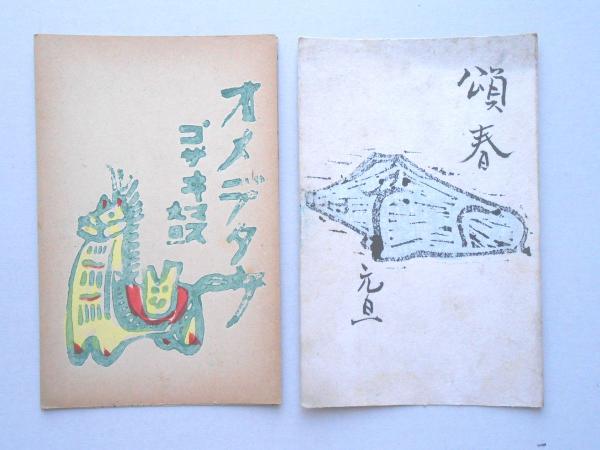 オメデタウ
ゴザヰマス
頌春
元旦